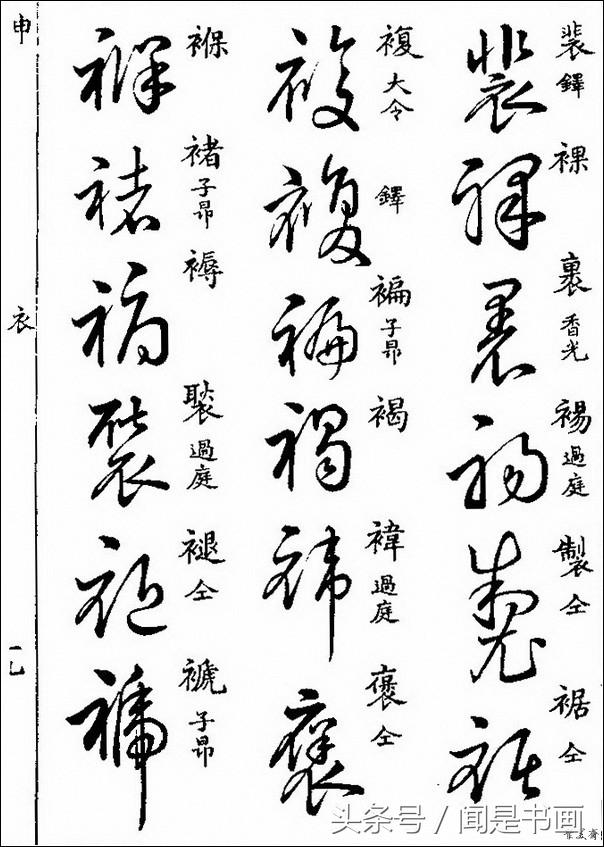 裴 鐸
裸
裹 香光
裼 過庭
製 仝
裾 仝
複 大令
鐸
褊 子昂
褐
褘 過庭
褒 仝
褓
褚 子昂
褥
褧 過庭
褪 仝
褫 子昂
申
衣
一七
头条号 / 闻是书画